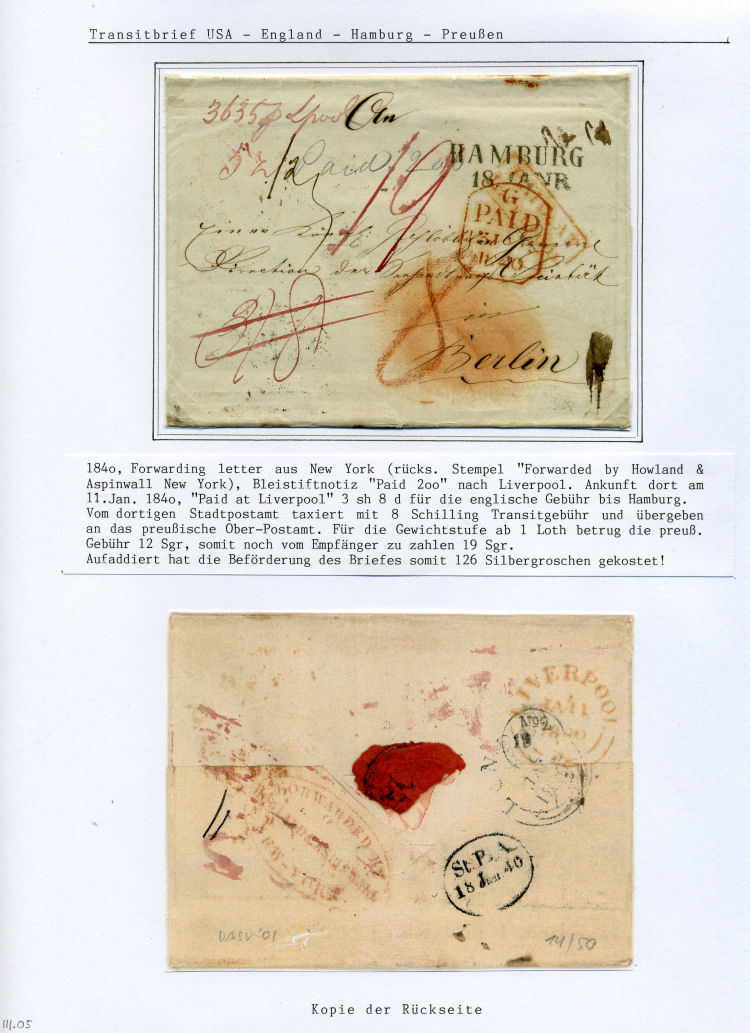 Transitbrief USA - England - Hamburg - Preußen
3635 Lpool An
12 Paid 200
HAMBURG
18 JANR
19
G
PAID
1840
Einer Königl.
Direction der
3/8 8
in
Berlin
184o, Forwarding letter aus New York (rücks. Stempel "Forwarded by Howland &
Aspinwall New York), Bleistiftnotiz "Paid 2oo" nach Liverpool. Ankunft dort am
11.Jan. 184o, "Paid at Liverpool" 3 sh 8 d für die englische Gebühr bis Hamburg.
Vom dortigen Stadtpostamt taxiert mit 8 Schilling Transitgebühr und übergeben
an das preußische Ober-Postamt. Für die Gewichtstufe ab 1 Loth betrug die preuß.
Gebühr 12 Sgr, somit noch vom Empfänger zu zahlen 19 Sgr.
Aufaddiert hat die Beförderung des Briefes somit 126 Silbergroschen gekostet!
LIVERPOOL
JA 11
1840
FORWARDED BY
St. P. A.
18 Jan 40
DASV '01
14/50
Kopie der Rückseite
III.05